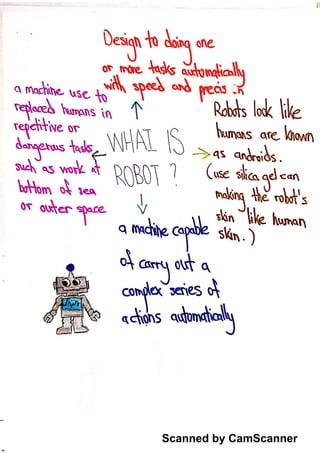 Design to doing one
or more tasks automatically
with speed and precis
a machine use to
replaced humans in
repetitive or
dangerous tasks
such as work at
bottom of sea
or outer space
WHAT IS
ROBOT ?
Robots look like
humans are known
as androids.
(use silica gel can
making the robot's
skin like human
skin.)
a machine capable
of carry out a
complex series of
actions automatically
Scanned by CamScanner